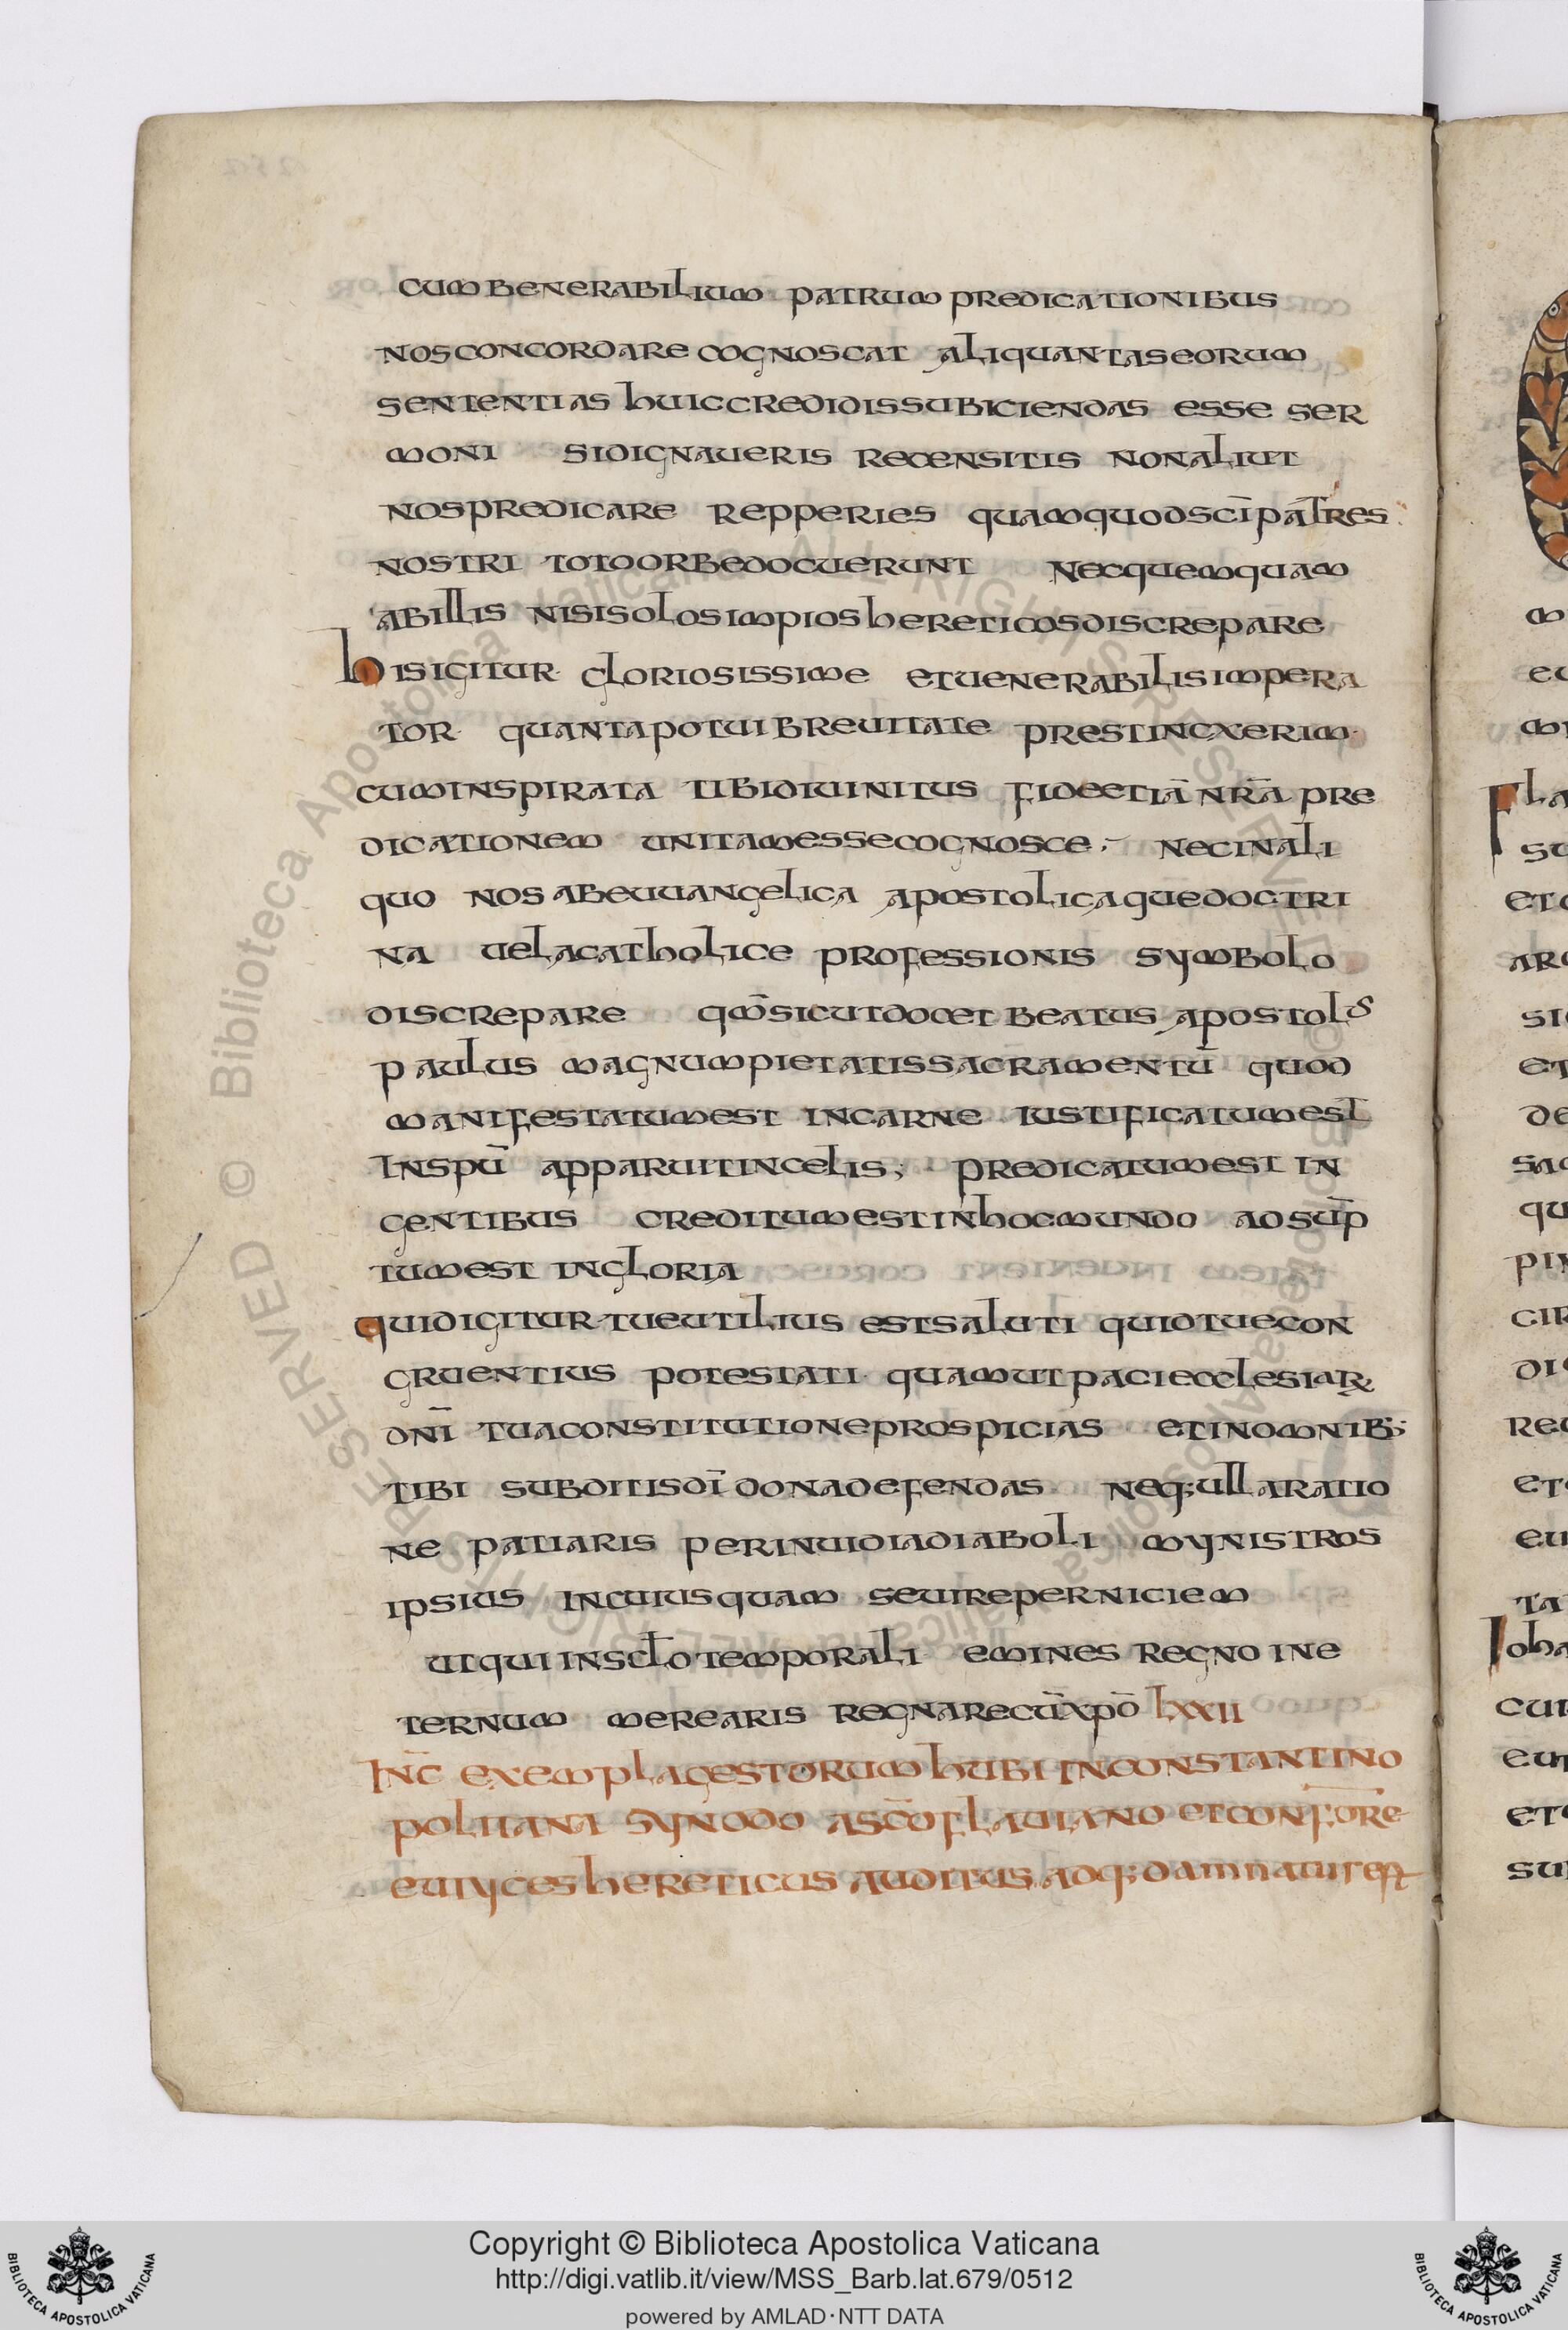 cum benerabilium patrum predicationibus
nos concordare cognoscat aliquantas eorum
sententias huic credidi ssubiciendas esse ser
moni si dignaueris recensitis non aliut
nos predicare repperies quam quod sc̄i pat̄res
nostri toto orbe docuerunt nec quemquam
ab illis nisi solos impios hereticos discrepare
his igitur gloriosissime et uenerabilis impera
tor quanta potui breuitate prestincxerim
cum inspirata tibi diuinitus fide etiā nr̄ā pre
dicationem unitam esse cognosce nec in ali
quo nos ab euuangelica apostolicaque doctri
na uel a catholice professionis symbolo
discrepare qm̄ sicut docet beatus apostolꝰ
paulus magnum pietatis sacramentū quod
manifestatum est in carne iustificatum est
in spū apparuit in celis; predicatum est in
gentibus creditum est in hoc mundo adsūp
tum est in gloria
quid igitur tue utilius est saluti quid tue con
gruentius potestati quam ut paci ecclesiaꝝ
dn̄i tua constitutione prospicias et in omnib;
tibi subditis dī dona defendas neq; ulla ratio
ne patiaris per inuidia diaboli mynistros
ipsius in cuiusquam seuire perniciem
ut qui in sc̄lo temporali emines regno in e
ternum merearis regnare cū xp̄o lxxii
Inc̄ exempla gestorum hubi in constantino
politana synodo a sc̄o flauiano et conf̄ore
eutyces hereticus auditus adq; damnatur est
Copyright © Biblioteca Apostolica Vaticana
http://digi.vatlib.it/view/MSS_Barb.lat.679/0512
powered by AMLAD·NTT DATA